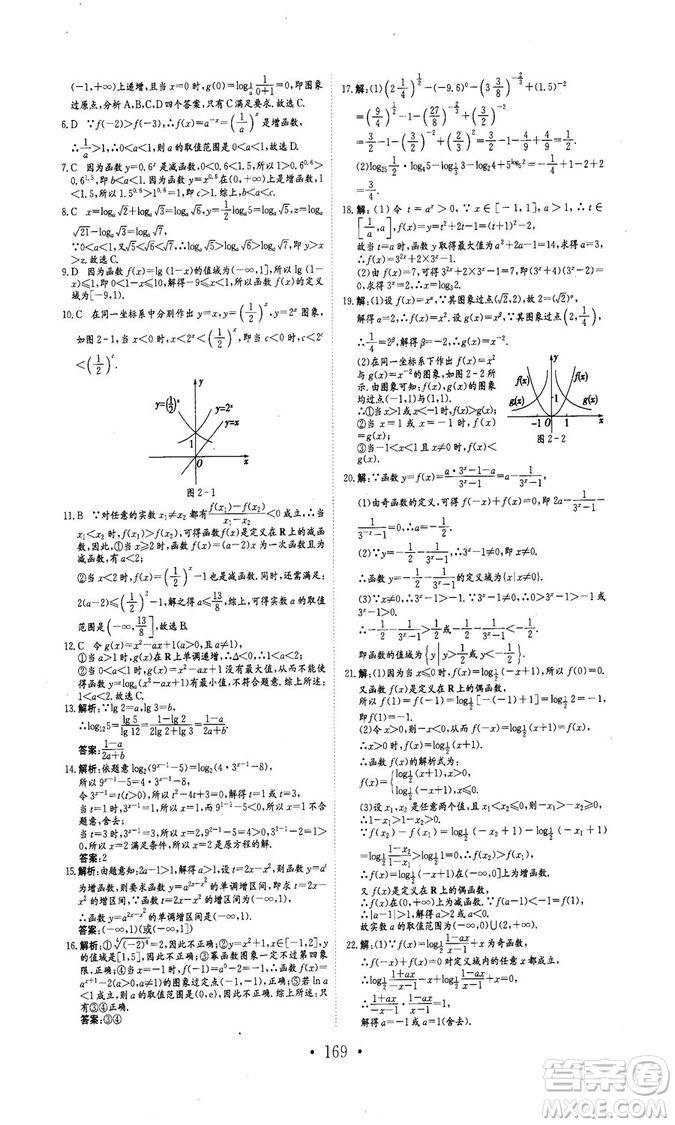 (-1,+∞)上递增,且当x=0时,g(0)=log_{1/a} 1/(0+1)=0,即图象
过原点,分析A、B、C、D四个答案,只有C满足要求.故选C.
6.D ∵f(-2)>f(-3),∴f(x)=a^{-x}=(1/a)^x是增函数,
∴1/a>1,∴0<a<1,则a的取值范围是0<a<1.故选D.
7.C 因为函数y=0.6^x是减函数,0<0.6<1.5,所以1>0.6^{0.6}>
0.6^{1.5},即b<a<1.因为函数y=x^{0.6}在(0,+∞)上是增函数,
1<1.5,所以1.5^{0.6}>1^{0.6}=1,即c>1.综上,b<a<c.故选C.
8.C x=log_a√2+log_a√3=log_a√6,y=½log_a5=log_a√5,z=log_a
√21-log_a√3=log_a√7,
∵0<a<1,又√5<√6<√7,∴log_a√5>log_a√6>log_a√7,即y>x
>z.故选C.
9.D 因为函数f(x)=lg(1-x)的值域为(-∞,1],所以lg(1-x)
≤1,即0<1-x≤10,解得-9≤x<1.所以函数f(x)的定义
域为[-9,1).
10.C 在同一坐标系中分别作出y=x,y=(1/2)^x,y=2^x图象,
如图2-1,当x<0时,x<2^x<(1/2)^x,即当c<0时,c<2^c
<(1/2)^c.
y=(1/2)^x y y=2^x
y=x
1
O x
图2-1
11.B ∵对任意的实数x₁≠x₂都有(f(x₁)-f(x₂))/(x₁-x₂)<0成立,∴当
x₁<x₂时,f(x₁)>f(x₂),可得函数f(x)是定义在R上的减函
数,因此,①当x≥2时,函数f(x)=(a-2)x为一次函数且为
减函数,有a<2;
②当x<2时,f(x)=(1/2)^x-1也是减函数.同时,还需满足:
2(a-2)≤(1/2)²-1,解之得a≤13/8,综上,可得实数a的取值
范围是(-∞,13/8],故选B.
12.C 令g(x)=x²-ax+1(a>0,a≠1),
①当a>1时,y=log_ax在R上单调递增,∴Δ<0,∴1<a<2;
②当0<a<1时,g(x)=x²-ax+1没有最大值,从而不能使得
函数y=log_a(x²-ax+1)有最小值,不符合题意.综上所述:
1<a<2.故选C.
13.解析:∵lg 2=a,lg 3=b,
∴log₁₂5=lg 5/lg 12=(1-lg 2)/(2lg 2+lg 3)=(1-a)/(2a+b).
答案:(1-a)/(2a+b)
14.解析:依题意log₂(9^{x-1}-5)=log₂(4·3^{x-1}-8),
所以9^{x-1}-5=4·3^{x-1}-8,
令3^{x-1}=t(t>0),则t²-4t+3=0,解得t=1或t=3,
当t=1时,3^{x-1}=1,所以x=1,而9^{1-1}-5<0,所以x=1不
合题意,舍去;
当t=3时,3^{x-1}=3,所以x=2,9^{2-1}-5=4>0,3^{2-1}-2=1>
0,所以x=2满足条件,所以x=2是原方程的解.
答案:2
15.解析:由题意知:2a-1>1,解得a>1,设t=2x-x²,则函数y=a^t
为增函数,
∴函数y=a^{2x-x²}的单调增区间即为t=2x-x²的单调增区间,
函数t=2x-x²的单调增区间为(-∞,1),
∴函数y=a^{2x-x²}的单调增区间为(-∞,1),
答案:(-∞,1)(或(-∞,1])
16.解析:①⁴√(-2)⁴=2,因此不正确;②y=x²+1,x∈[-1,2],y
的值域是[1,5],因此不正确;③幂函数图象一定不过第四象
限,正确;④当x=-1时,f(-1)=a⁰-2=-1,∴函数f(x)=
a^{x+1}-2(a>0,a≠1)的图象过定点(-1,-1),正确;⑤若ln a
<1成立,则a的取值范围是(0,e),因此不正确.
答案:③④
17.解:(1)(2¼)^{1/2}-(-9.6)⁰-(3⅜)^{2/3}+(1.5)^{-2}
=(9/4)^{1/2}-1-(27/8)^{2/3}+(3/2)^{-2}
=3/2-1-(3/2)²+(3/2)^{-2}=3/2-1-9/4+4/9
(2)log₂₅½·log₄5-log_{1/3}3-log₂4+5^{log₅2}=-¼+1-2+2=
3/4.
18.解:(1)令t=a^x>0,∵x∈[-1,1],a>1,∴t∈
[1/a,a],f(x)=y=t²+2t-1=(t+1)²-2,
故当t=a时,函数y取得最大值为a²+2a-1=14,求得a=3,
∴f(x)=3^{2x}+2×3^x-1.
(2)由f(x)=7,可得3^{2x}+2×3^x-8=0,即(3^x+4)·(3^x-2)
=0,求得3^x=2,∴x=log₃2.
19.解:(1)设f(x)=x^α,∵其图象过点(√2,2),故2=(√2)^α,
解得α=2,∴f(x)=x².设g(x)=x^β,∵其图象过点(2,1/4),
∴1/4=2^β,解得β=-2,∴g(x)=x^{-2}.
(2)在同一坐标系下作出f(x)=x²
与g(x)=x^{-2}的图象,如图2-2
所示.由图象可知:f(x),g(x)的图象
均过点(-1,1)与(1,1).
∴①当x>1或x<-1时,f(x)>g(x);
②当x=1或x=-1时,f(x)
=g(x);
③当-1<x<1且x≠0时,f(x)<
g(x).
y f(x) f(x) g(x) g(x) 1 -1 O 1 x
图2-2
20.解:∵函数y=f(x)=(a·3^x-1-a)/(3^x-1)=a-1/(3^x-1).
(1)由奇函数的定义,可得f(-x)+f(x)=0,即2a-1/(3^x-1)-
1/(3^{-x}-1)=0,∴a=-1/2.
(2)∵y=-1/2-1/(3^x-1),∴3^x-1≠0,即x≠0.
∴函数y=-1/2-1/(3^x-1)的定义域为{x|x≠0}.
(3)∵x≠0,∴3^x-1>-1.∵3^x-1≠0,∴-1<3^x-1<0或
3^x-1>0.
∴-1/2-1/(3^x-1)>1/2或-1/2-1/(3^x-1)<-1/2.
即函数的值域为{y|y>1/2或y<-1/2}.
21.解:(1)∵当x≤0时,f(x)=log_{1/2}(-x+1),
又函数f(x)是定义在R上的偶函数,
∴f(1)=f(-1)=log_{1/2}[-(-1)+1]=log_{1/2}2=-1,
即f(1)=-1.
(2)令x>0,则-x<0,从而f(-x)=log_{1/2}(x+1)=f(x),
∴x>0时,f(x)=log_{1/2}(x+1).
∴函数f(x)的解析式为
f(x)={log_{1/2}(x+1),x>0,
log_{1/2}(-x+1),x≤0.
(3)设x₁,x₂是任意两个值,且x₁<x₂≤0,则-x₁>-x₂≥0,
∴1-x₁>1-x₂>0.
∵f(x₂)-f(x₁)=log_{1/2}(-x₂+1)-log_{1/2}(-x₁+1)
=log_{1/2}(1-x₂)/(1-x₁)>log_{1/2}1=0,∴f(x₂)>f(x₁),
∴f(x)=log_{1/2}(-x+1)在(-∞,0]上为增函数.
又∵f(x)是定义在R上的偶函数,
∴f(x)在(0,+∞)上为减函数.
∵f(a-1)<-1=f(1),
∴|a-1|>1,解得a>2或a<0.
故实数a的取值范围为(-∞,0)∪(2,+∞).
22.解:(1)∵函数f(x)=log_{1/2}(1-ax)/(x-1)为奇函数,
∴f(x)+f(-x)=0对定义域内的任意x都成立,
∴log_{1/2}(1+ax)/(-x-1)+log_{1/2}(1-ax)/(x-1)=0,
∴(1+ax)/(-x-1)·(1-ax)/(x-1)=1,
解得a=-1或a=1(舍去).
· 169 ·
答案圈
MXQE.COM